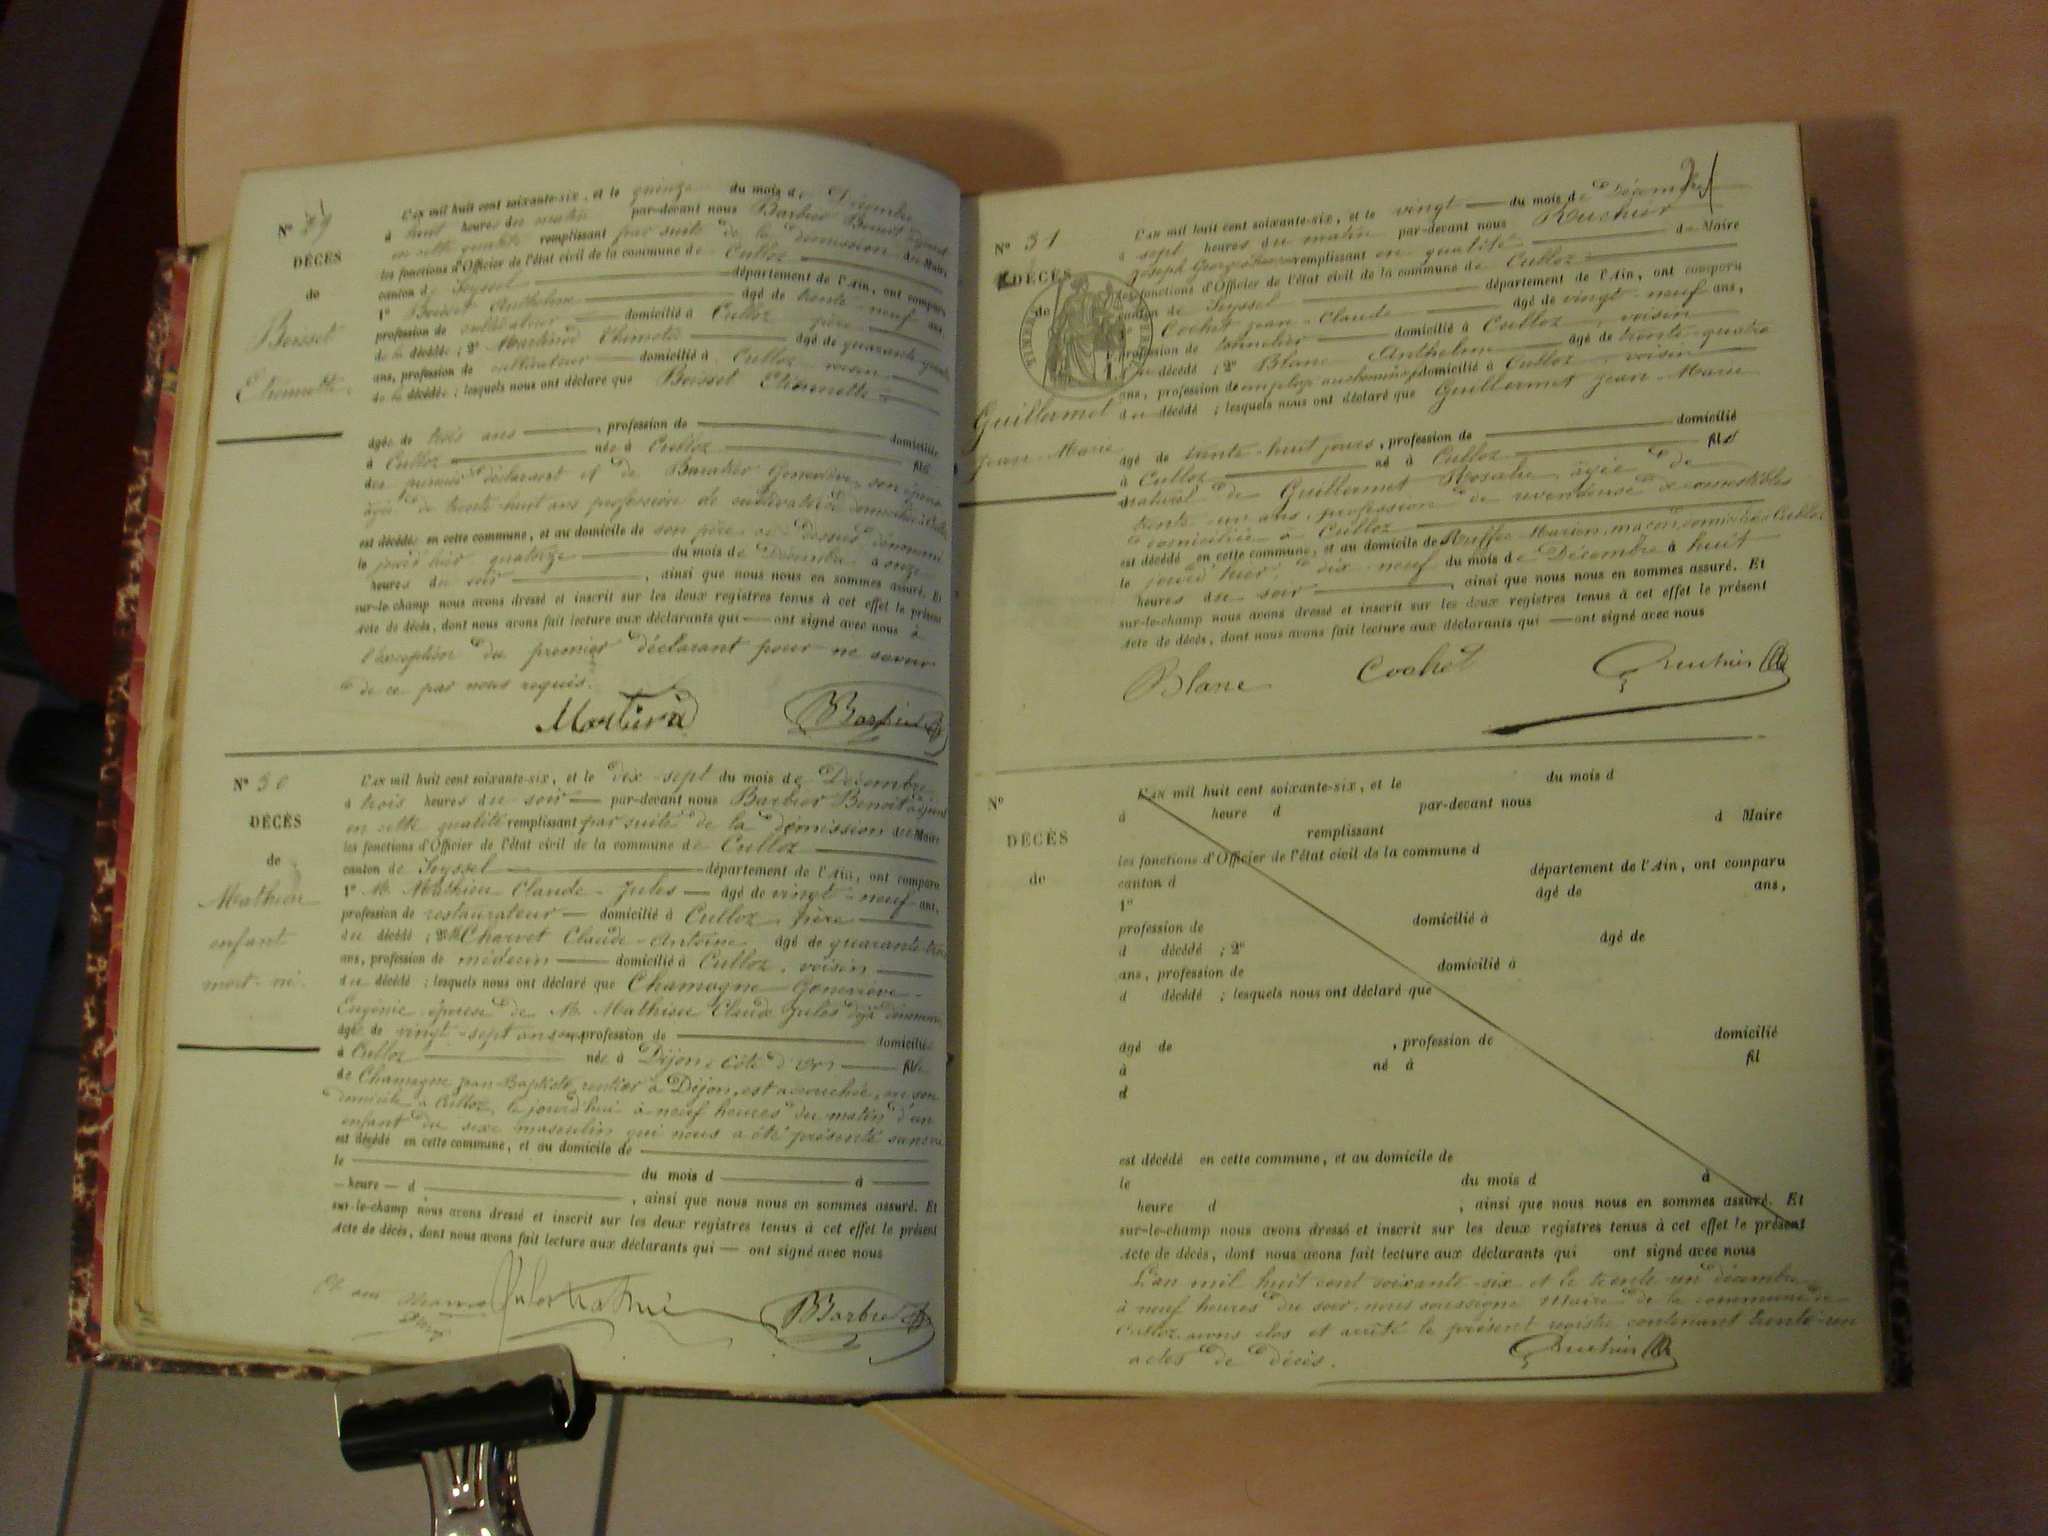 N° 29
DÉCÈS
de
Boisset
Etiennette.
L'AN mil huit cent soixante-six, et le quinze du mois de Décembre
à huit heures du matin par-devant nous Barbier Benoit adjoint
en cette qualité remplissant par suite de la démission du Maire
les fonctions d'Officier de l'état civil de la commune de Culloz
canton de Seyssel département de l'Ain, ont comparu
1° Boisset Anthelme âgé de trente-neuf ans,
profession de cultivateur domicilié à Culloz père
de la décédée ; 2° Martinod Thimotée âgé de quarante quatre
ans, profession de cultivateur domicilié à Culloz, voisin
de la décédée ; lesquels nous ont déclaré que Boisset Etiennette
âgée de trois ans, profession de domiciliée
à Culloz née à Culloz fille
du premier déclarant et de Geneviève, son épouse
âgée de trente-huit ans profession de cultivatrice domiciliée à Culloz
est décédée en cette commune, et au domicile de son père ci-dessus dénommé
le jourd'hier quatorze du mois de Décembre à onze
heures du soir, ainsi que nous nous en sommes assuré. Et
sur-le-champ nous avons dressé et inscrit sur les deux registres tenus à cet effet le présent
Acte de décès, dont nous avons fait lecture aux déclarants qui ont signé avec nous à
l'exception du premier déclarant pour ne savoir
de ce par nous requis.
Barbier
N° 30
DÉCÈS
de
Mathieu
enfant
mort-né.
L'AN mil huit cent soixante-six, et le dix-sept du mois de Décembre
à trois heures du soir par-devant nous Barbier Benoit adjoint
en cette qualité remplissant par suite de la démission du Maire
les fonctions d'Officier de l'état civil de la commune de Culloz
canton de Seyssel département de l'Ain, ont comparu
1° M. Mathieu Claude-Jules âgé de vingt-neuf ans,
profession de restaurateur domicilié à Culloz père
du décédé ; 2° M. Charvet Claude-Antoine, âgé de quarante-trois
ans, profession de médecin domicilié à Culloz, voisin
du décédé ; lesquels nous ont déclaré que Chamagne Geneviève-
Eugénie épouse de M. Mathieu Claude Jules déjà dénommé
âgé de vingt-sept ans sans profession de domiciliée
à Culloz née à Dijon Côte d'Or fille
de Chamagne Jean-Baptiste, rentier à Dijon, est accouchée, en son
domicile à Culloz, le jourd'hui à neuf heures du matin d'un
enfant du sexe masculin qui nous a été présenté sans vie
est décédé en cette commune, et au domicile de
le du mois d à
heure d, ainsi que nous nous en sommes assuré. Et
sur-le-champ nous avons dressé et inscrit sur les deux registres tenus à cet effet le présent
Acte de décès, dont nous avons fait lecture aux déclarants qui ont signé avec nous
Jules Mathieu Barbier
N° 31
DÉCÈS
de
Guillermet
Jean-Marie
L'AN mil huit cent soixante-six, et le vingt du mois de Décembre
à sept heures du matin par-devant nous Ruchier
Joseph Georges remplissant en qualité de Maire
les fonctions d'Officier de l'état civil de la commune de Culloz
canton de Seyssel département de l'Ain, ont comparu
1° Cochet Jean-Claude âgé de vingt-neuf ans,
profession de tonnelier domicilié à Culloz, voisin
du décédé ; 2° Blanc Anthelme âgé de trente-quatre
ans, profession de employé au chemin de fer domicilié à Culloz, voisin
du décédé ; lesquels nous ont déclaré que Guillermet Jean-Marie
âgé de trente-huit jours, profession de domicilié
à Culloz né à Culloz fils
naturel de Guillermet Rosalie, âgée de
trente-un ans, profession de revendeuse de comestibles
domiciliée à Culloz
est décédé en cette commune, et au domicile de Ruffe Mariom, maçon, domicilié à Culloz
le jourd'hier, dix-neuf du mois de Décembre à huit
heures du soir, ainsi que nous nous en sommes assuré. Et
sur-le-champ nous avons dressé et inscrit sur les deux registres tenus à cet effet le présent
Acte de décès, dont nous avons fait lecture aux déclarants qui ont signé avec nous
Blanc Cochet Ruchier
N°
DÉCÈS
de
L'AN mil huit cent soixante-six, et le du mois d
à heure d par-devant nous
remplissant d Maire
les fonctions d'Officier de l'état civil de la commune d
canton d département de l'Ain, ont comparu
1° âgé de ans,
profession de domicilié à
d décédé ; 2° âgé de
ans, profession de domicilié à
d décédé ; lesquels nous ont déclaré que
âgé de, profession de domicilié
à né à fil
d
est décédé en cette commune, et au domicile de
le du mois d à
heure d, ainsi que nous nous en sommes assuré. Et
sur-le-champ nous avons dressé et inscrit sur les deux registres tenus à cet effet le présent
Acte de décès, dont nous avons fait lecture aux déclarants qui ont signé avec nous
L'an mil huit cent soixante-six et le trente-un décembre
à neuf heures du soir, nous soussigné Maire de la commune de
Culloz avons clos et arrêté le présent registre contenant trente-un
actes de décès. Ruchier